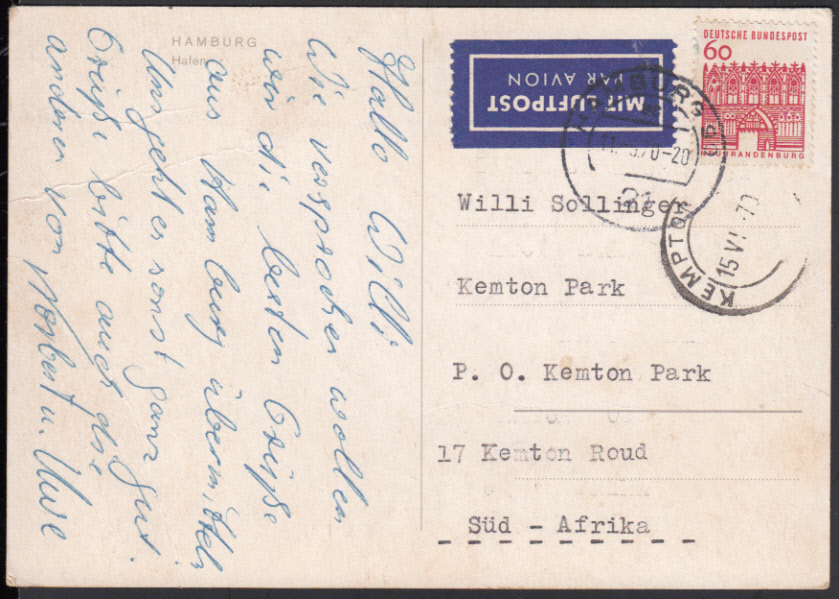 HAMBURG
Hafen
Hallo Willi
Wie versprochen wollen
wir die besten Grüße
aus Hamburg übermitteln
Uns geht es sonst ganz gut.
Grüße bitte auch die
anderen von Norbert u. Uwe
MIT LUFTPOST
PAR AVION
DEUTSCHE BUNDESPOST
60
BRANDENBURG
HAMBURG
70-20
21
KEMPTO
15 VI 70
Willi Sollinger
Kemton Park
P. O. Kemton Park
17 Kemton Roud
Süd - Afrika